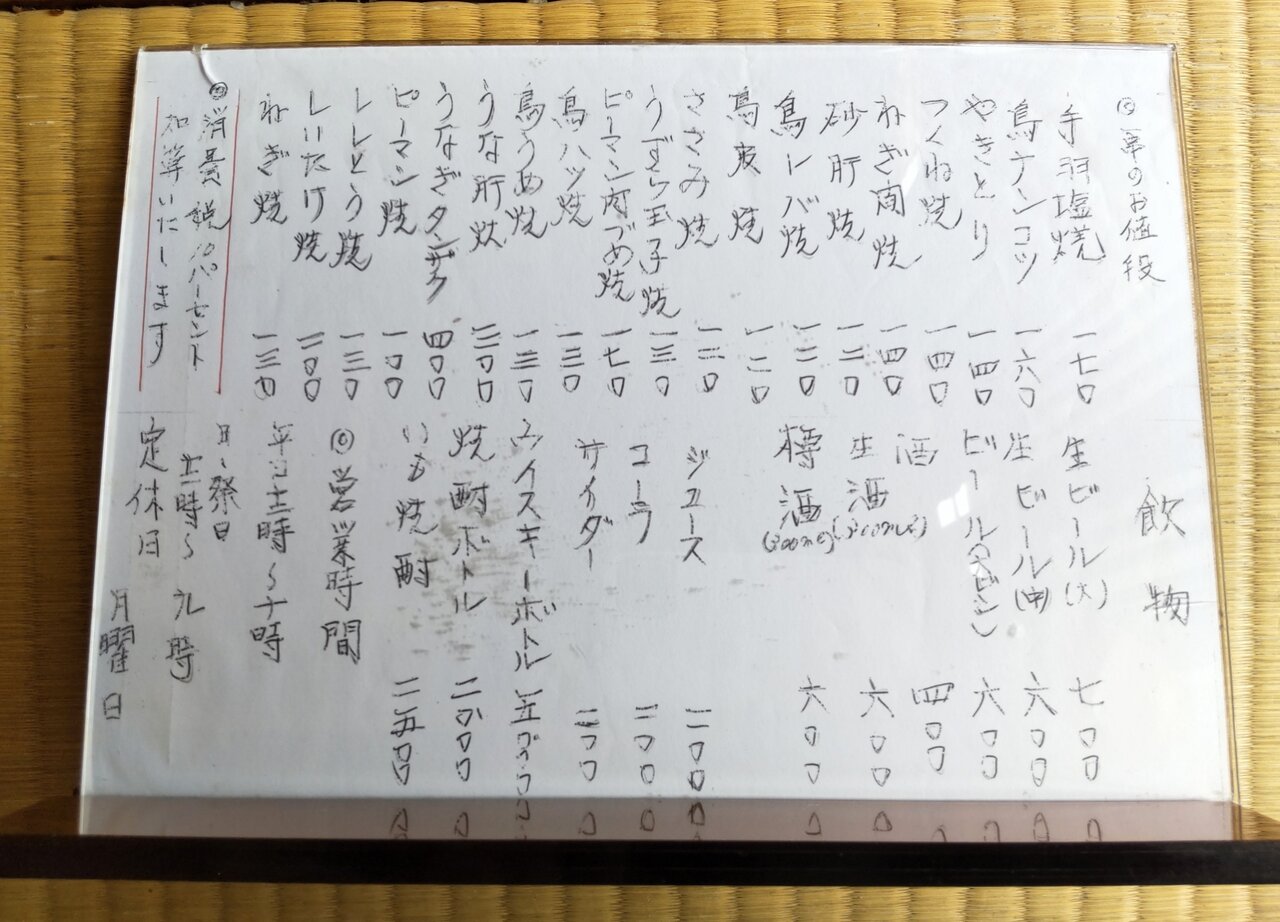 ◎串のお値段
手羽塩焼 一七〇
鳥ナンコツ 一六〇
やきとり 一四〇
つくね焼 一四〇
ねぎ肉焼 一四〇
砂肝焼 一三〇
鳥レバ焼 一三〇
鳥皮焼 一二〇
ささみ焼 一三〇
うずら玉子焼 一三〇
ピーマン肉づめ焼 一七〇
鳥ハツ焼 一三〇
鳥うめ焼 一三〇
うな肝焼 三〇〇
うなぎタンザク 四〇〇
ピーマン焼 一〇〇
ししとう焼 一三〇
しいたけ焼 二〇〇
ねぎ焼 一三〇
◎消費税10パーセント
加算いたします
飲物
生ビール(大) 七〇〇
生ビール(中) 六〇〇
ビール(大ビン) 六〇〇
酒 四〇〇
生酒(300ml) 六〇〇
樽酒(300ml) 六〇〇
ジュース 二〇〇
コーラ 二〇〇
サイダー 二〇〇
ウイスキーボトル 五〇〇〇
焼酎ボトル
いも焼酎 二五〇〇
◎営業時間
平日十二時〜十時
日・祭日
十二時〜九時
定休日 月曜日